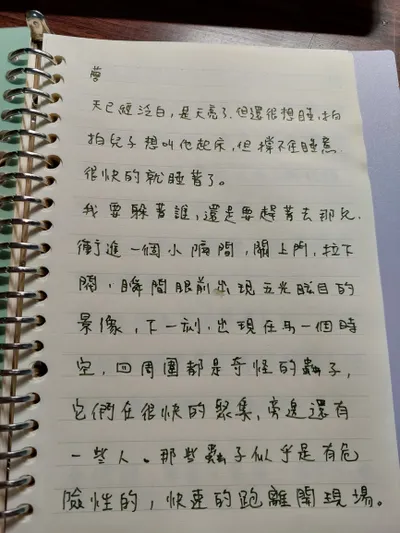 夢
天已經泛白，是天亮了．但還很想睡，拍
拍兒子想叫他起床，但撐不住睡意
很快的就睡著了。
我要躲著誰，還是要趕著去那兒，
衝進一個小隔間，關上門，拉下
閘，瞬間眼前出現五光眩目的
景像，下一刻，出現在另一個時
空，四周圍都是奇怪的蟲子，
它們在很快的聚集，旁邊還有
一些人。那些蟲子似乎是有危
險性的，快速的跑離開現場。